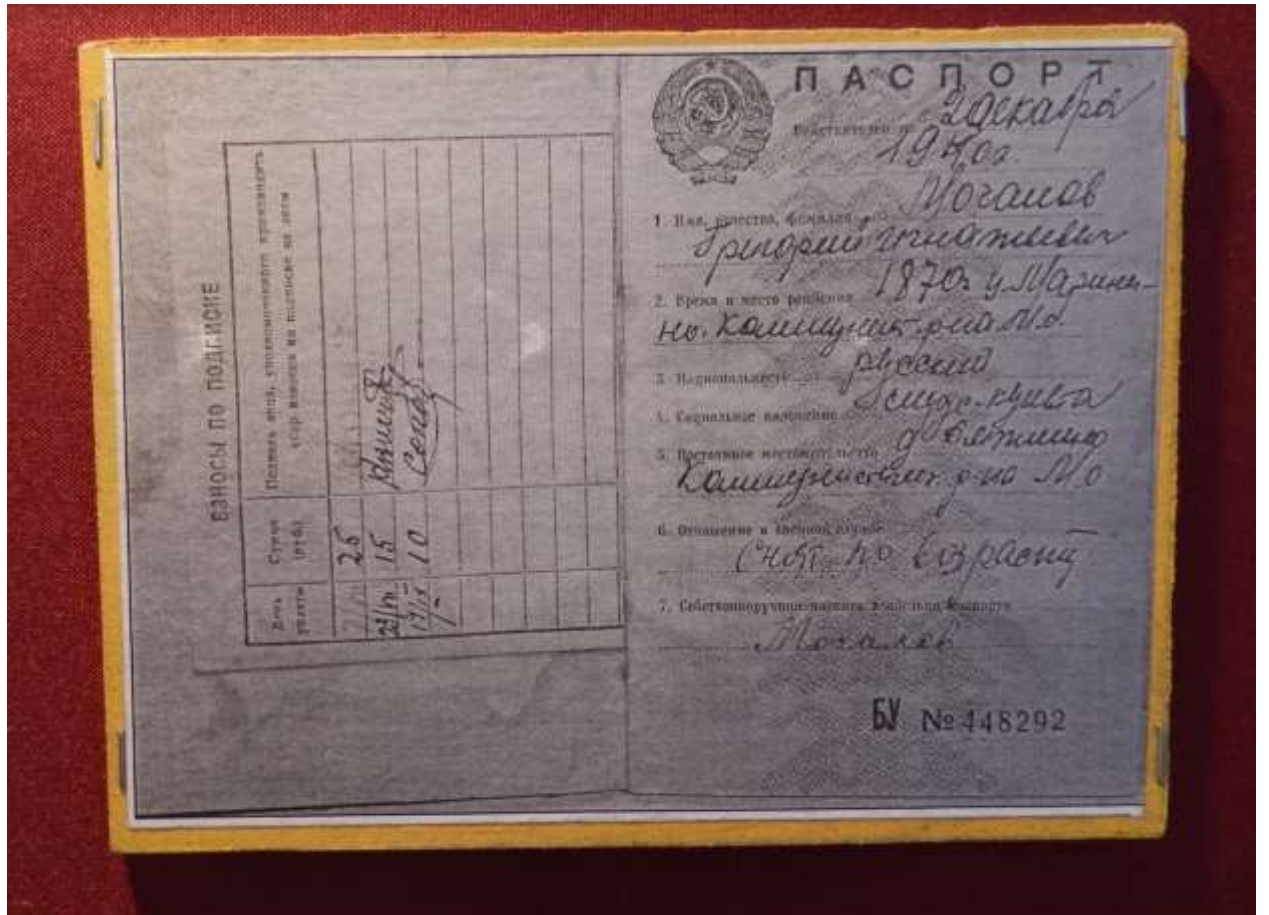 ВЗНОСЫ ПО ПОДПИСКЕ
День уплаты
Сумма (руб.)
Подпись лица, уполномоченного производить сбор взносов по подписке на заем
25
23/IV 15
17/IX 10
ПАСПОРТ
Действителен по 2 декабря
19
Мочалов
1. Имя, отчество, фамилия
Григорий Игнатьевич
2. Время и место рождения 1870г
но. Коммунист. р-на М.о.
3. Национальность русский
4. Социальное положение
5. Постоянное местожительство
Коммунистичес р-на М.о
6. Отношение к военной службе
Снят по возрасту
7. Собственноручная подпись владельца паспорта
Мочалов
БУ № 448292